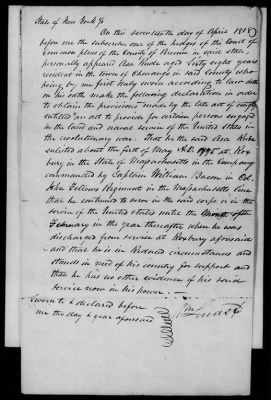 State of New York ss
On this seventeenth day of April 1818
before me the subscriber one of the Judges of the Court of
Common pleas of the County of in said State,
personally appeared aged Sixty eight years
resident in the town of Chenango in said County who
being by me first duly sworn according to law doth
on his oath make the following declaration in order
to obtain the provisions made by the late act of congress
entitled an act to provide for certain persons engaged
in the land and naval service of the United States in
the revolutionary war. That he the said
enlisted about the first of May 1775 at Rox
bury in the State of Massachusetts in the Company
commanded by Captain William Bacon in Col.
John Fellows Regiment in the Massachusetts line
that he continued to serve in the said corps or in the
service of the United States until the
February in the year thereafter when he was
discharged from service at Roxbury aforesaid
and that he is in reduced circumstances and
stands in need of his country for support and
that he has no other evidence of his said
service now in his power. —
Sworn to & declared before
me the day & year aforesaid